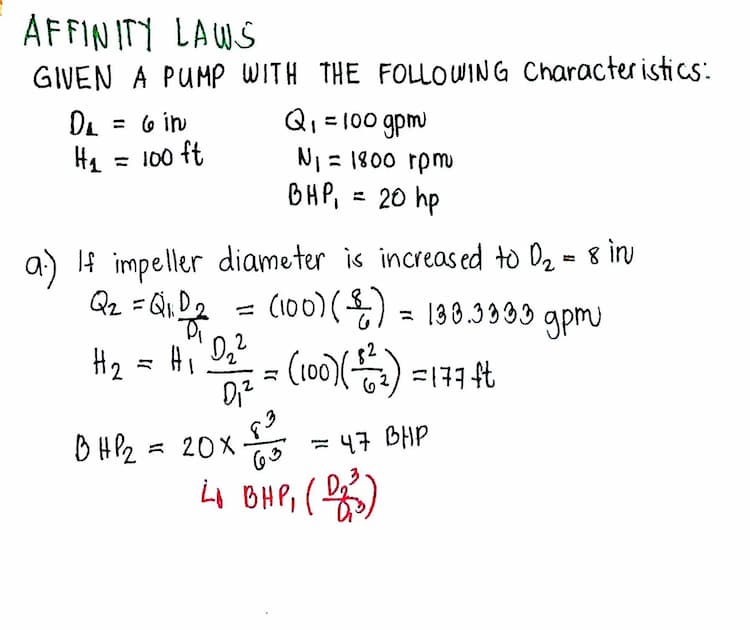 AFFINITY LAWS
GIVEN A PUMP WITH THE FOLLOWING Characteristics:
D1 = 6 in Q1 = 100 gpm
H1 = 100 ft N1 = 1800 rpm
BHP1 = 20 hp
a.) If impeller diameter is increased to D2 = 8 in
Q2 = Q1 D2/D1 = (100)(8/6) = 133.3333 gpm
H2 = H1 D2²/D1² = (100)(8²/6²) = 177 ft
BHP2 = 20 x 8³/6³ = 47 BHP
↳ BHP1 (D2³/D1³)